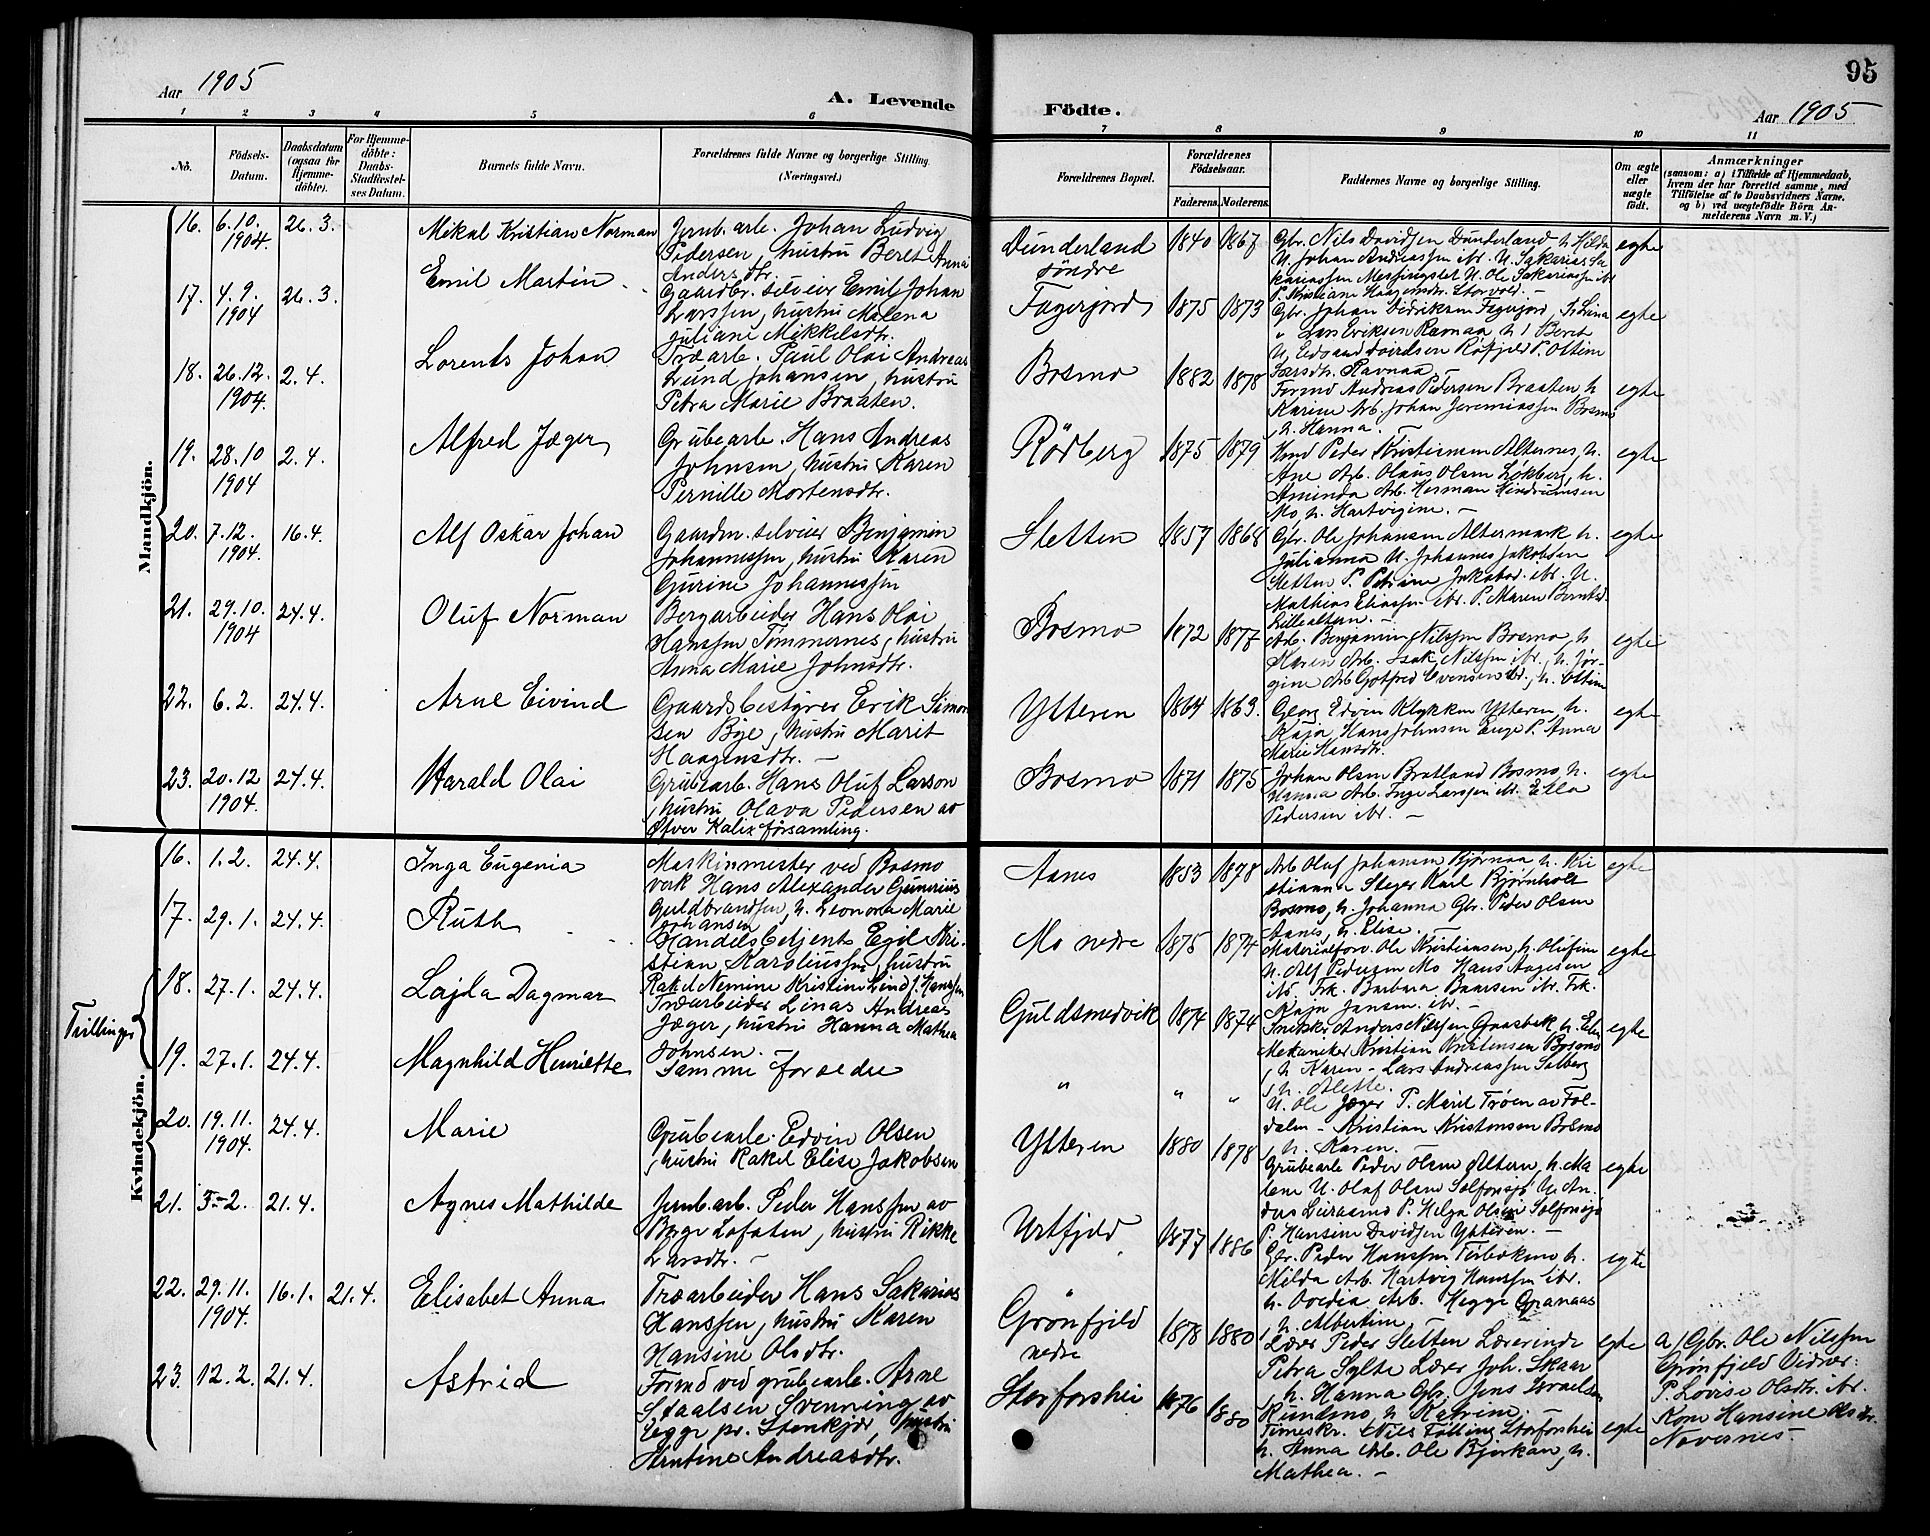 95
Aar 1905
A. Levende
Födte.
Aar 1905
1 2 3 4 5 6 7 8 9 10 11
No.
Födsels-Datum.
Daabsdatum (ogsaa for Hjemmedöbte).
For Hjemmedöbte: Daabs-Stadfæstelses Datum.
Barnets fulde Navn.
Forældrenes fulde Navne og borgerlige Stilling.
(Næringsvei.)
Forældrenes Bopæl.
Forældrenes Födselsaar.
Faderens.
Moderens.
Faddernes Navne og borgerlige Stilling.
Om ægte eller uægte födt.
Anmærkninger
(saasom: a) i Tilfælde af Hjemmedaab, hvem der har forrettet samme, med Tilföielse af to Daabsvidners Navne, og b) ved uægtefödte Börn Anmelderens Navn m. V.)
Mandkjön.
16. 6.10. 1904. 26.3. Mikal Kristian Norman
Jernb. arb. Johan Ludvig
Pedersen, hustru Beret Anna
Andersdtr.
Dunderland søndre 1840 1867
Gbr. Nils Davidsen Dunderland, h. Hilda
U. Johan Andreassen ibr. U. Sakarias Sa-
kariassen Messingslet U. Ole Sakariassen ibr
P. Kristiane Haagensdtr. Storvold. –
egte
17. 4.9. 1904 26.3. Emil Martin
Gaardbr. selveier Emil Johan
Larssen, hustru Malena
Juliane Mikkelsdtr.
Fagerjord 1875 1873
Gbr. Johan Didriksen Fagerjord,
" Lars Eriksen Ravnaa h. Beret
egte
18. 26.12. 1904. 2.4. Lorents Johan
Træarb. Paul Olai Andreas
Lund Johansen, hustru
Petra Marie Braaten.
Bosmo 1882 1878
Formd Andreas Pedersen Braaten h.
Karine Arb. Johan Jeremiassen Bosmo
, h. Hanna.
egte
19. 28.10 1904 2.4. Alfred Jæger
Grubearb. Hans Andreas
Johnsen, hustru Karen
Pernille Mortensdtr.
Rödberg 1875 1879
Peder Kristiansen Alternes, h.
Ane Arb. Olaus Olsen Løkberg, h.
Aminda Arb. Herman Hendriksen
Mo, h. Hartvigine. –
egte
20. 7.12. 1904. 16.4. Alf Oskar Johan
Gaardm. selveier Benjamin
Johannessen, hustru Karen
Gurine Johannessen
Sletten 1857 1868
Gbr. Ole Johansen Altermark h.
Julianna U. Johannes Jakobsen
Sletten P. Petrine Jakobsd. ibr. U.
Mathias Eliassen ibr. P. Maren Berntsd.
Lillealteren. –
egte
21. 29.10. 1904 24.4. Oluf Norman
Bergarbeider Hans Olai
Hanssen Tømmernes, hustru
Anna Marie Johnsdtr.
Bosmo 1872 1877
Arb. Benjamin Nilssen Bosmo, h.
Maren Arb. Isak Nilssen ibr., h. Jør-
gine Arb. Gotfred Evensen ibr., h. Ottine
egte
22. 6.2. 24.4. Arne Eivind
Gaardsbestyrer Erik Simon
sen Bye, hustru Marit
Haagensdtr. –
Ytteren 1864 1863.
Georg Edvin Klykken Ytteren h.
Kaja, Hans Johnsen Enge P. Anna
Marie Hansdtr.
egte
23. 20.12 1904. 24.4. Harald Olai
Grubearb. Hans Oluf Larson
, hustru Olava Pedersen av
Øfver Kalix församling.
Bosmo 1871 1875
Johan Olsen Bratland Bosmo, h.
Hanna Arb. Inge Larssen ibr. Etla
Pedersen ibr. –
egte
Kvindekjön.
16. 1.2. 24.4. Inga Eugenia
Maskinmester ved Bosmo
verk Hans Alexander Gunerius
Guldbrandsen, h. Leonora Marie
Johansen
Aanes 1853 1878
Arb. Olaf Johansen Bjørnaa h. Kri
stianna Steger Karl Bjørnholt
Bosmo, h. Johanna Gbr. Peder Olsen
Aanes, h. Elise. –
egte
17. 29.1. 24.4. Ruth
Handelsbetjent Egil Kri-
stian Karoliussen, hustru
Rakel Nemine Kristine Lind f. Hanssen
Mo nedre 1875 1874
Materialforv. Ole Kristiansen, h. Olufine
U. Alf Pedersen Mo Hans Aagesen
ibr. Frk. Barbara Baarsen ibr. Frk.
Kaja Jansen ibr. –
egte
Tvillinger
18. 27.1. 24.4. Lajla Dagmar
Træarbeider Linas Andreas
Jæger, hustru Hanna Mathea
Johnsen.
Guldsmedvik 1874 1874
Snedker Anders Nilssen Graabek h. Elen
Mekaniker Kristian Kristensen Bosmo
, h. Karen – Lars Andreassen Solberg
, h. Alette.
egte
19. 27.1. 24.4. Magnhild Henriette
Samme forældre
" " "
U. Ole Jæger P. Marit Trøen av Fol-
dalen – Kristian Kristensen Bosmo
, h. Karen.
20. 19.11. 1904. 24.4. Marie
Grubearb. Edvin Olsen
, hustru Rakel Elise Jakobsen
Ytteren 1880 1878
Grubearb Peder Olsen Ytteren, h. Ma
lene U. Olaf Olsen Solfonsjö U. An-
ders Leirosund P. Helga Olsen Solfonsjö
P. Hansine Davidsen Ytteren. –
egte
21. 5-2. 21.4. Agnes Mathilde
Jernb. arb. Peder Hanssen av
Borge Lofoten, hustru Rikke
Larsdtr. –
Urtfjeld 1877 1886
Gbr. Peder Hanssen h.
Milda Arb. Hartvig Hanssen ibr.
, h. Albertine.
egte
22. 29.11. 1904. 16.1. 21.4. Elisabet Anna
Træarbeider Hans Sakarias
Hanssen, hustru Karen
Hansine Olsdtr.
Grønfjeld nedre 1878 1880
Lærer Peder Sletten Lærerinde
Petra Sylte Lærer Joh. Skaar
, h. Hanna Gbr. Jens Israelsen
Rundmo, h. Katrine. –
egte
a) Gbr. Ole Nilssen
Grønfjeld Vidner:
P. Lovise Olsdtr. ibr.
Kone Hansine Olsdtr.
Nævernes –
23. 12.2. 21.4. Astrid
Formd ved grubearb. Arne
Staalsen Svenning av
Egge pr. Stenkjær, hustru
Arntine Andreasdtr.
Storforshei 1876 1880
Timeskr. Nils Følling, Storforshei
h. Anna Arb. Ole Bjerkan, h.
Mathea. –
egte